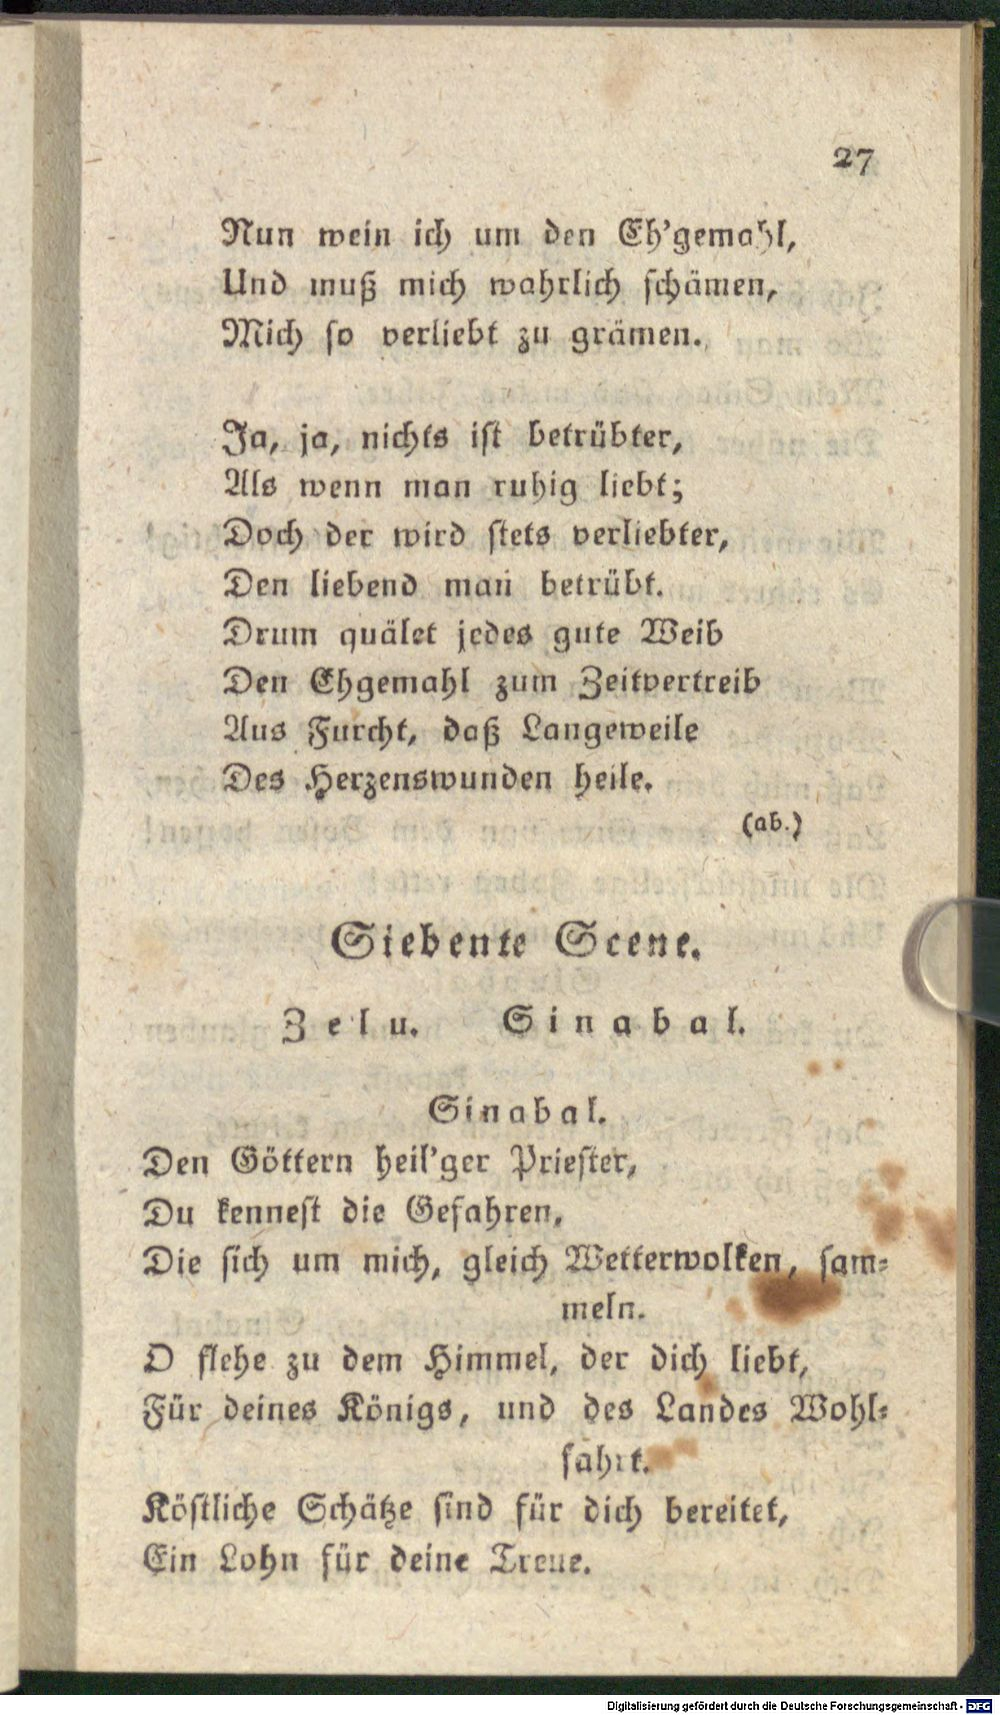 27
Nun wein ich um den Eh'gemahl,
Und muß mich wahrlich schämen,
Mich so verliebt zu grämen.
Ja, ja, nichts ist betrübter,
Als wenn man ruhig liebt;
Doch der wird stets verliebter,
Den liebend man betrübt.
Drum quälet jedes gute Weib
Den Ehgemahl zum Zeitvertreib
Aus Furcht, daß Langeweile
Des Herzenswunden heile.
(ab.)
Siebente Scene.
Zelu. Sinabal.
Sinabal.
Den Göttern heil'ger Priester,
Du kennest die Gefahren,
Die sich um mich, gleich Wetterwolken, sam-
meln.
O flehe zu dem Himmel, der dich liebt,
Für deines Königs, und des Landes Wohl-
fahrt.
Köstliche Schätze sind für dich bereitet,
Ein Lohn für deine Treue.
Digitalisierung gefördert durch die Deutsche Forschungsgemeinschaft - DFG